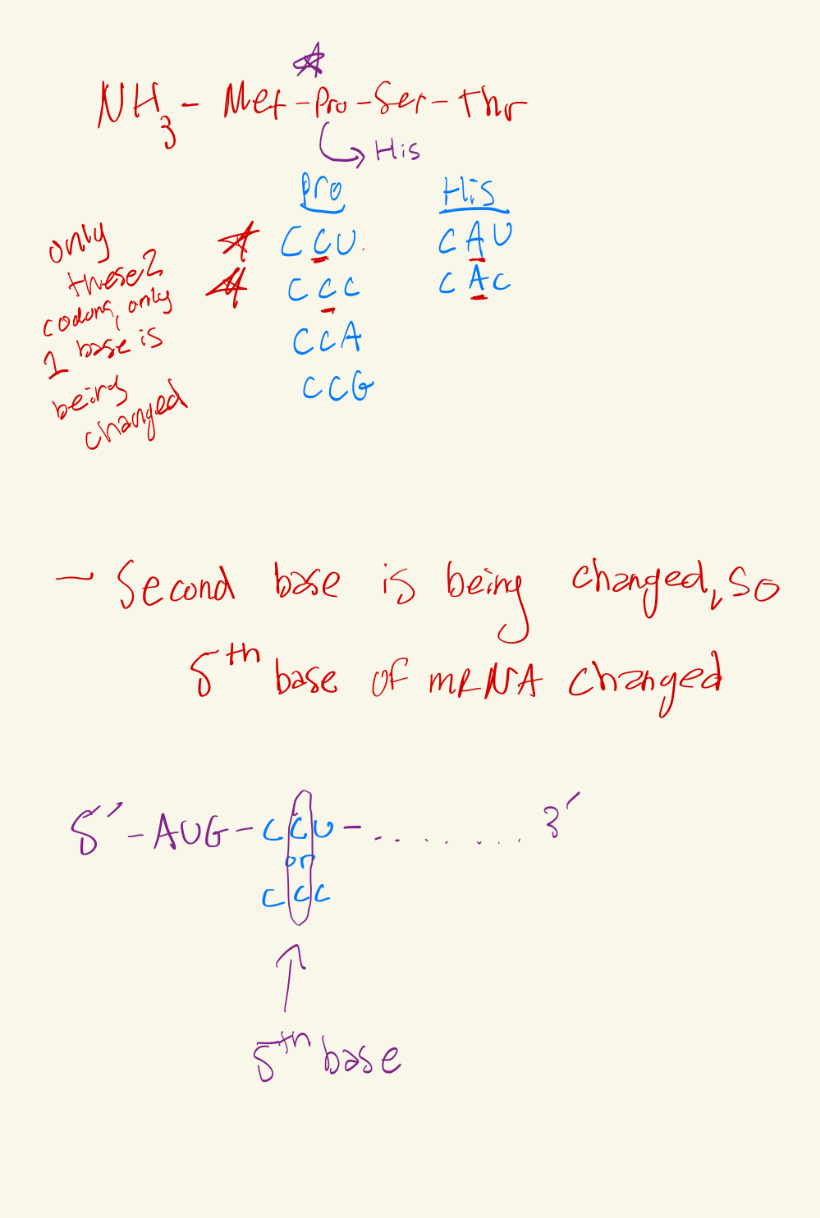 NH3 - Met - Pro - Ser - Thr
His
Pro His
CCU. CAU
CCC CAC
CCA
CCG
only
these 2
codons, only
1 base is
being
changed
- Second base is being changed, so
5th base of mRNA changed
5' - AUG - CCU - ........ 3'
or
CCC
5th base